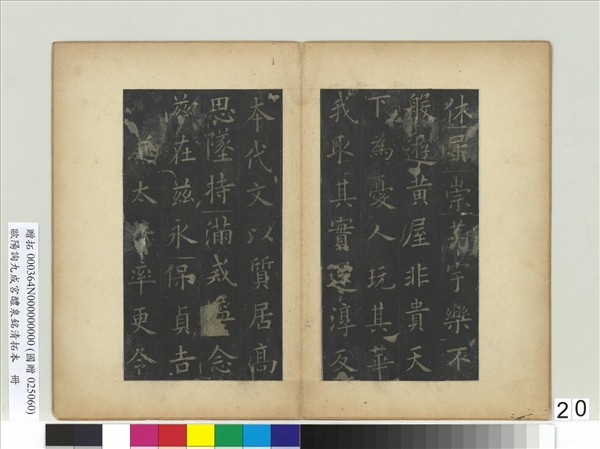 休屈崇茅宇樂不
般遊黃屋非貴天
下為憂人玩其華
我取其實還淳反
本代文以質居高
思墜持滿戒溢念
茲在茲永保貞吉
兼太子率更令
贈拓 000364N000000000 (國贈 025060)
歐陽詢九成宮醴泉銘清拓本 冊
20